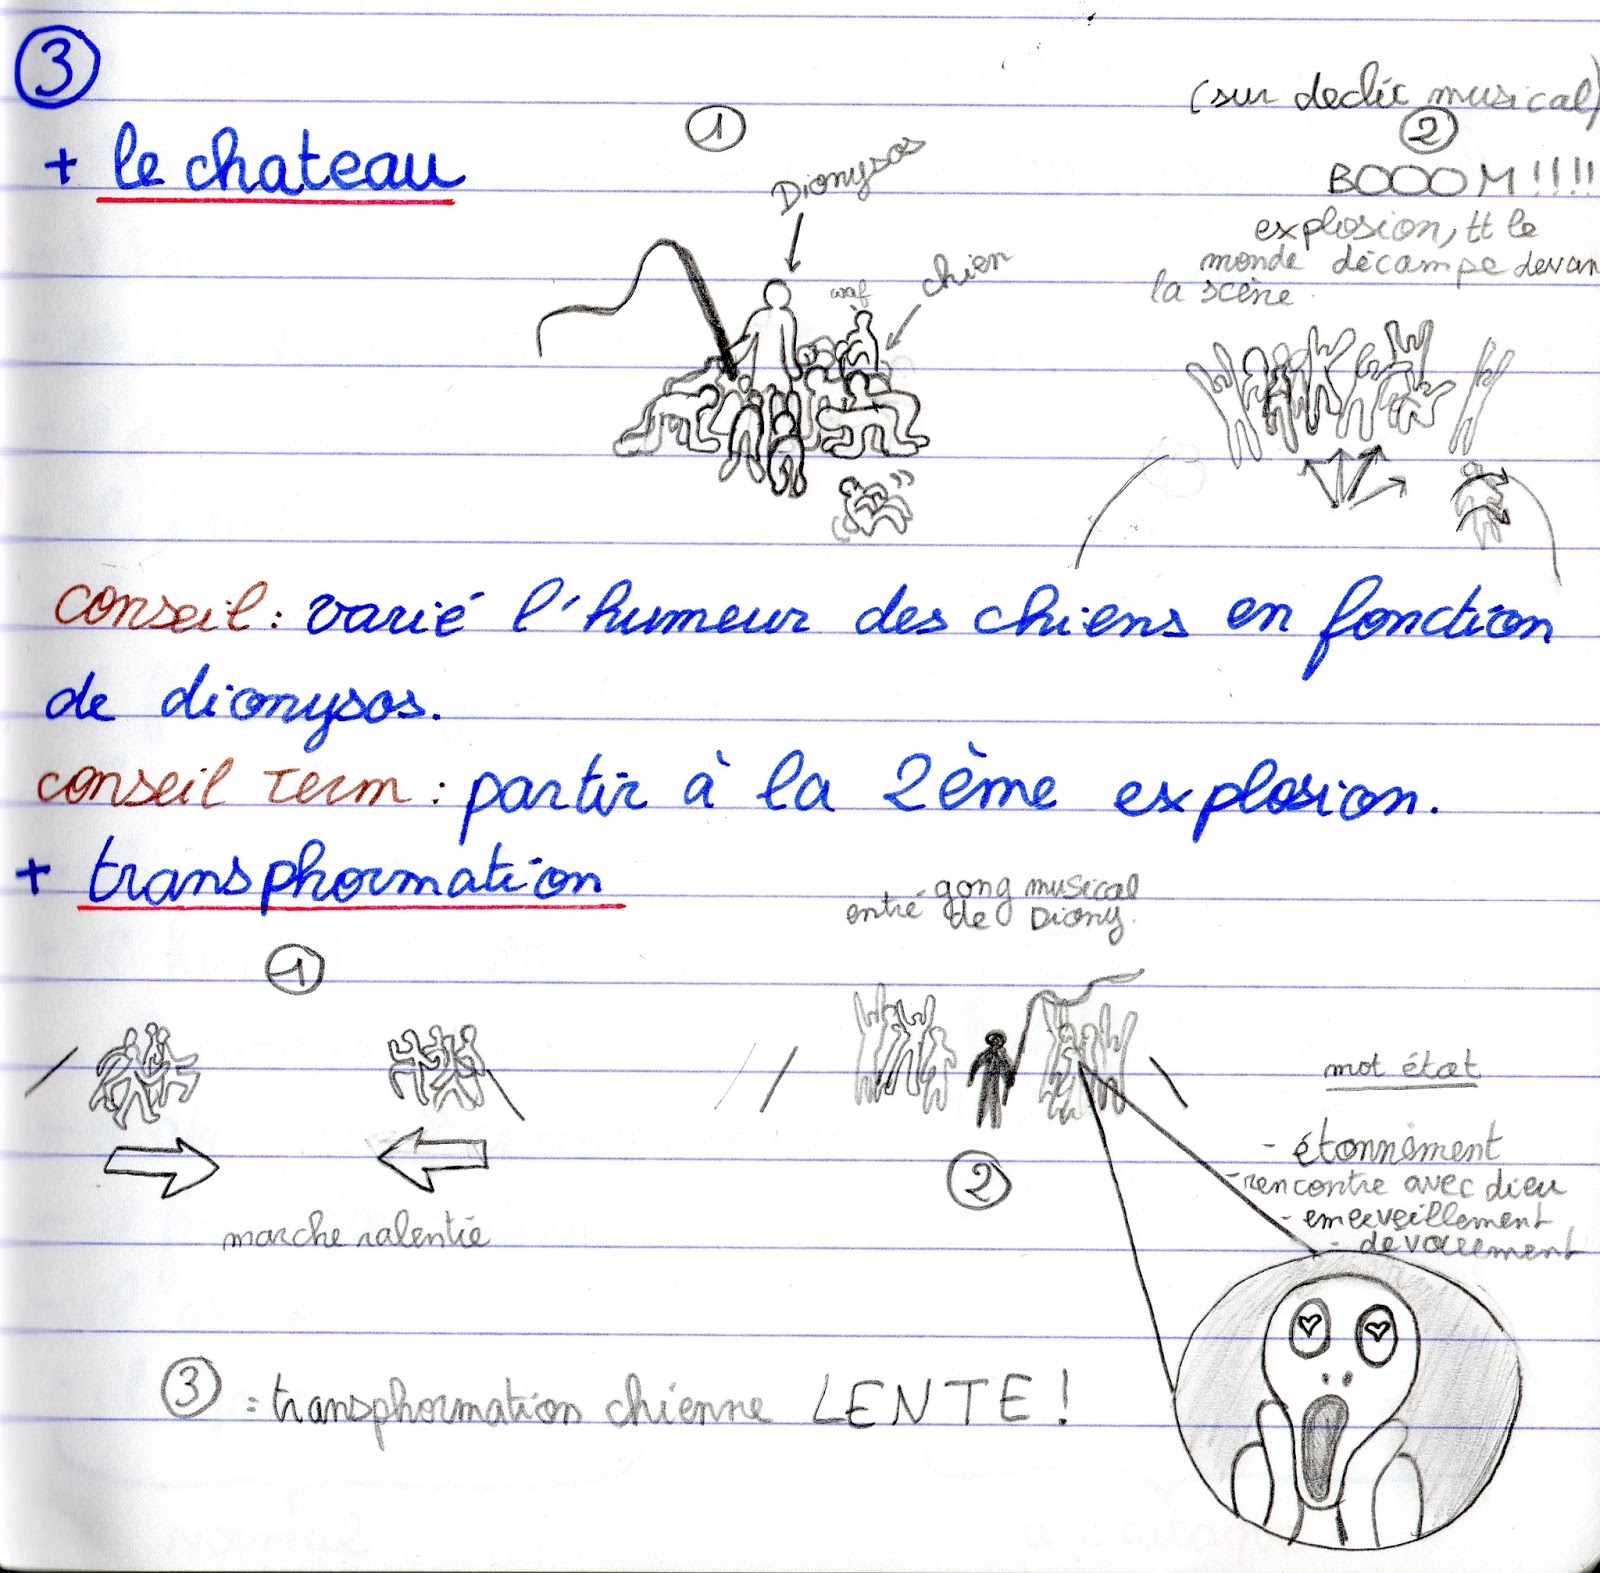 3
+ le chateau
1
Dionysos
waf
chien
(sur declic musical)
2
BOOOM !!!!
explosion, tt le
monde décampe devan
la scène.
conseil : varié l'humeur des chiens en fonction
de dionysos.
conseil Term : partir à la 2ème explosion.
+ transphormation
1
marche ralentie
entré gong musical
de Diony.
2
mot état
- étonnément
- rencontre avec dieu
- emerveillement
- devouement
3 : transphormation chienne LENTE !